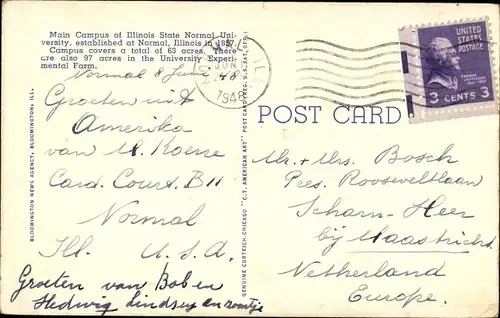 Main Campus of Illinois State Normal Uni-
versity, established at Normal, Illinois in 1857.
Campus covers a total of 63 acres. There
are also 97 acres in the University Experi-
mental Farm.
Normal 8 Juni '48
Groeten uit
Amerika
van M. Koene
Card. Court. B11
Normal
Ill. U.S.A.
Groeten van Bob en
Hedwig Lindsey en zoontje
BLOOMINGTON NEWS AGENCY, BLOOMINGTON, ILL.
GENUINE CURTEICH-CHICAGO "C.T. AMERICAN ART" POST CARD (REG. U.S. PAT. OFF.)
NORMAL ILL.
JUN
1948
UNITED
STATES
POSTAGE
THOMAS
JEFFERSON
3 CENTS 3
POST CARD
Mr. + Mrs. Bosch
Pres. Rooseveltlaan
Scharn-Heer
bij Maastricht
Netherland
Europe.